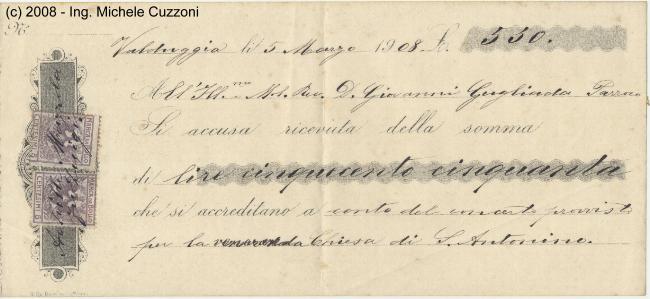 (c) 2008 - Ing. Michele Cuzzoni
Nº
Valduggia li 5 Marzo 1908. £. 550.
All'Ill.mo M. Rev. D. Giovanni Gugliada Parroco
Si accusa ricevuta della somma
di lire cinquecento cinquanta
che si accreditano a conto del concerto provvisto
per la veneranda Chiesa di S. Antonino.